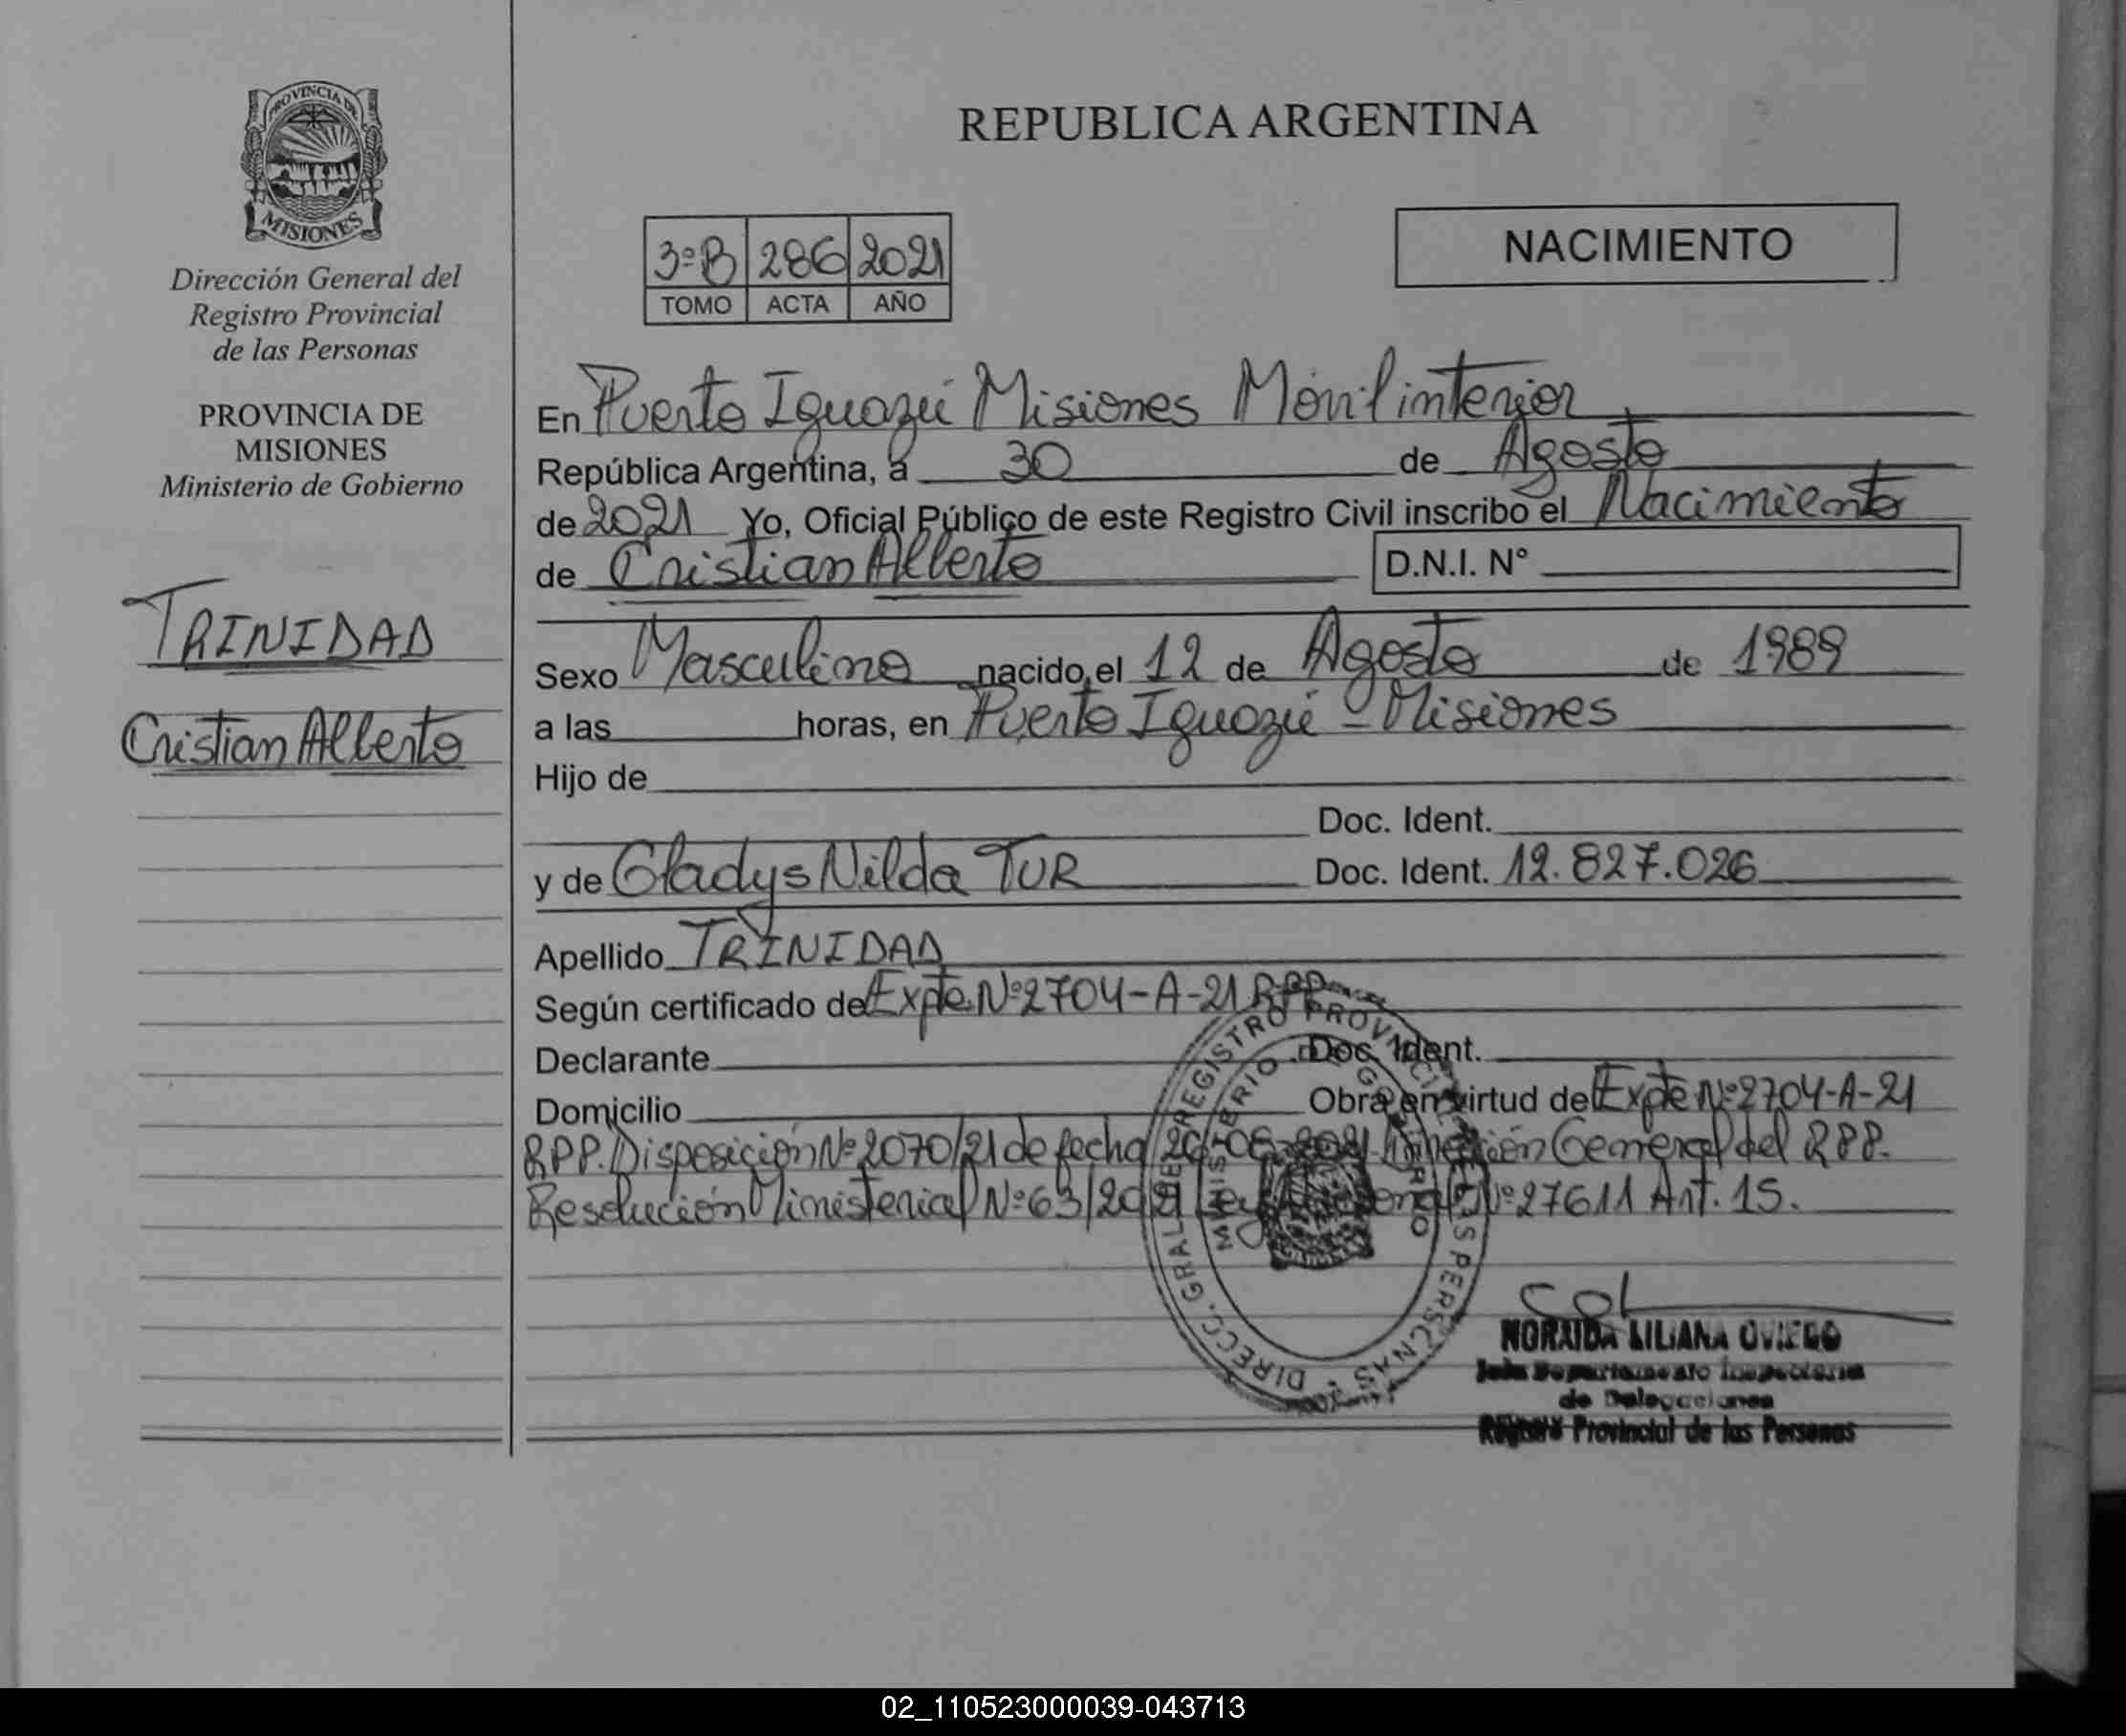 PROVINCIA DE
MISIONES
Dirección General del
Registro Provincial
de las Personas
PROVINCIA DE
MISIONES
Ministerio de Gobierno
TRINIDAD
Cristian Alberto
REPUBLICA ARGENTINA
3ºB 286 2021
TOMO ACTA AÑO
NACIMIENTO
En Puerto Iguazú Misiones Móvil interior
República Argentina, a 30 de Agosto
de 2021 Yo, Oficial Público de este Registro Civil inscribo el Nacimiento
de Cristian Alberto D.N.I. Nº
Sexo Masculino nacido el 12 de Agosto de 1989
a las horas, en Puerto Iguazú - Misiones
Hijo de
Doc. Ident.
y de Gladys Nilda TUR Doc. Ident. 12.827.026
Apellido TRINIDAD
Según certificado de Expte Nº 2704-A-21 RPP
Declarante Doc. Ident.
Domicilio Obra en virtud de Expte Nº 2704-A-21
RPP. Disposición Nº 2070/21 de fecha Dirección General del RPP.
Resolución Ministerial Nº 63/2021 Ley Nacional Nº 27611 Art. 15.
DIRECC. GRAL. DEL REGISTRO PROVINCIAL DE LAS PERSONAS
MINISTERIO DE GOBIERNO
NORAIDA LILIANA OVIEDO
Departamento
de Delegaciones
Registro Provincial de las Personas
02_110523000039-043713